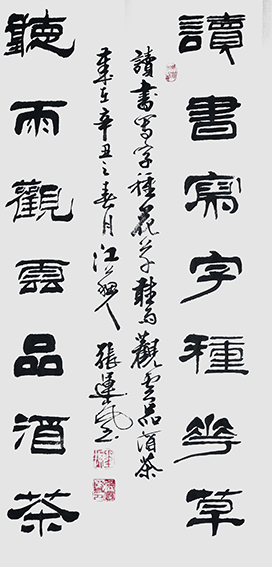 讀書寫字種花草
讀書寫字種花草聽雨觀雲品酒茶
歲在辛丑之春月江人張運
聽雨觀雲品酒茶